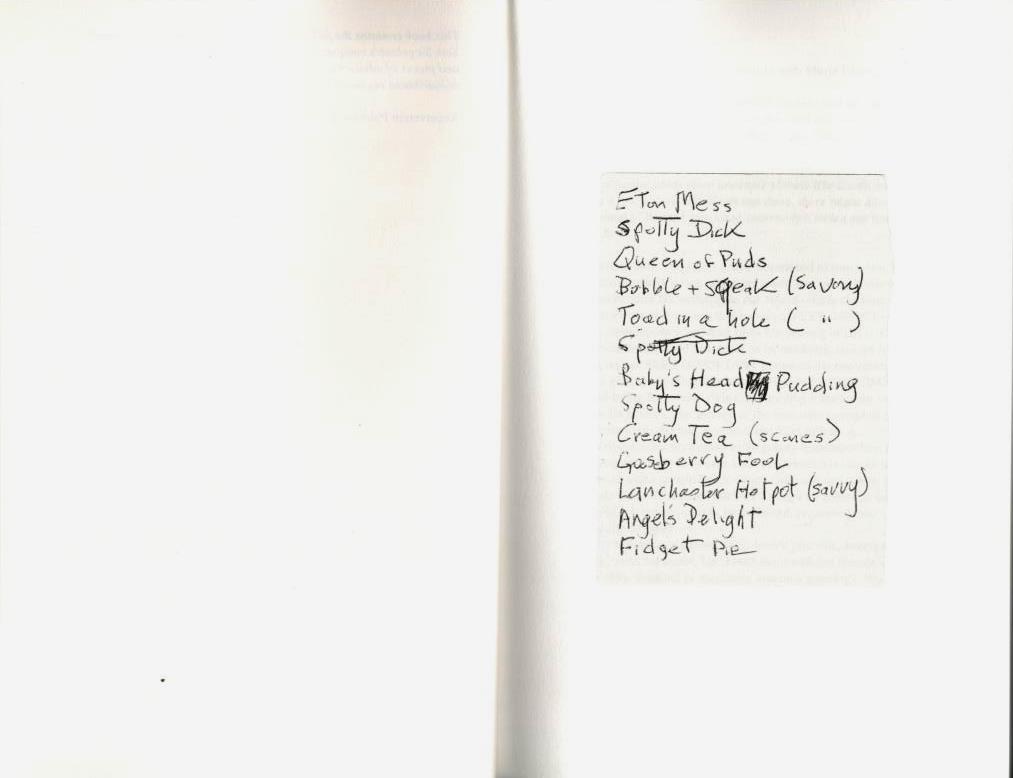 Eton Mess
Spotty Dick
Queen of Puds
Bubble + Sqeak (Savory)
Toad in a hole ( " )
Spotty Dick
Baby's Head Pudding
Spotty Dog
Cream Tea (scones)
Gooseberry Fool
Lanchester Hotpot (savvy)
Angel's Delight
Fidget Pie